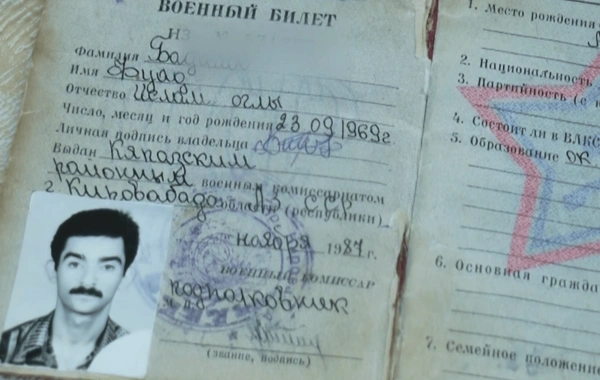 ВОЕННЫЙ БИЛЕТ
НЗ
Фамилия
Имя Фуад
Отчество Ислам оглы
Число, месяц и год рождения 23 09 1969г.
Личная подпись владельца
Выдан Кяпазским
районным военным комиссариатом
г Кировабада области (республики)
ноября 1987г.
ВОЕННЫЙ КОМИССАР
подполковник
М. П.
(звание, подпись)
1. Место рождения
2. Национальность
3. Партийность (с
4. Состоит ли в ВЛКС
5. Образование
6. Основная гражда
7. Семейное положение